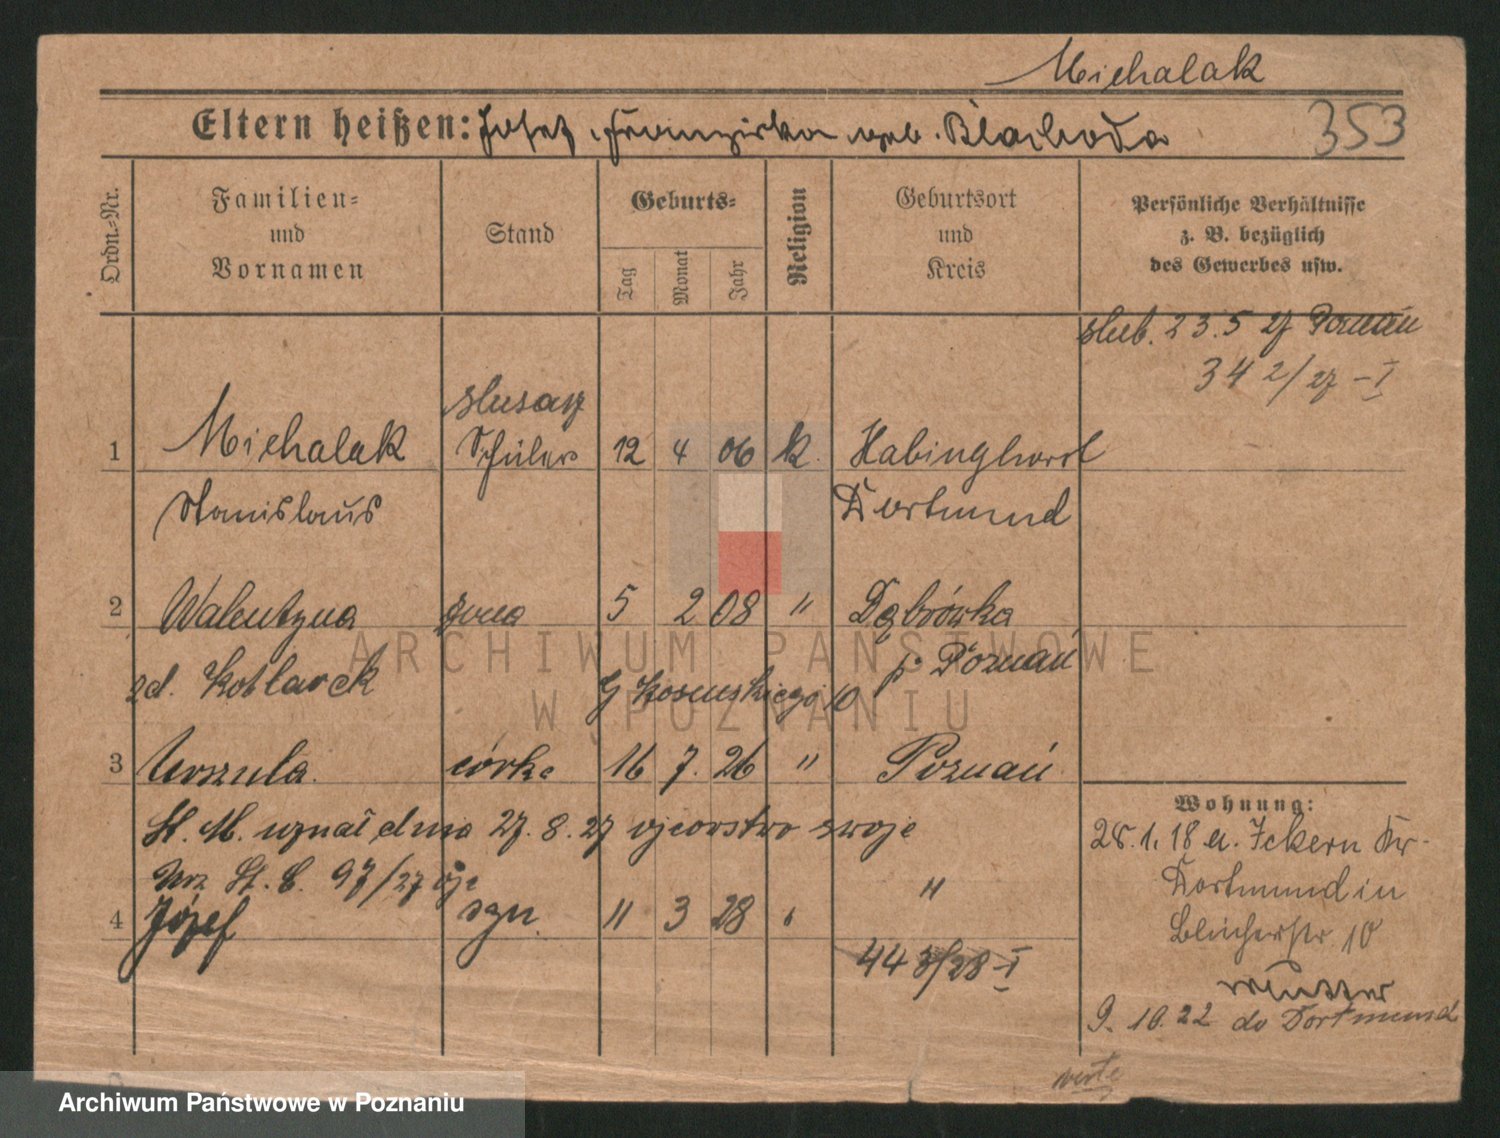 Michalak
Eltern heißen: Josef, Franziska geb. Blachoda
353
Ordn.-Nr.
Familien- und Vornamen
Stand
Geburts-
Tag
Monat
Jahr
Religion
Geburtsort und Kreis
Persönliche Verhältnisse
z. B. bezüglich
des Gewerbes usw.
slub. 23.5 27 Poznań
34 2/27 - I
ślusarz
1 Michalak Schüler 12 4 06 k. Habinghorst
Stanislaus Dortmund
2 Walentyna żona 5 2 08 " Dąbrówka
zd. Kotlarek p. Poznań
G 10
3 Urszula córka 16 7. 26 " Poznań
St. M. uznał dnia 27. 8. 27 ojcostwo swoje
St. C. 97/27
4 Józef syn. 11 3 28 " "
44 3/28 - I
Wohnung:
28. 1. 18 a. Ickern Kr.
Dortmund in
Blücherstr 10
Mutter
9. 10. 22 do Dortmund
verte
ARCHIWUM PAŃSTWOWE
W POZNANIU
Archiwum Państwowe w Poznaniu